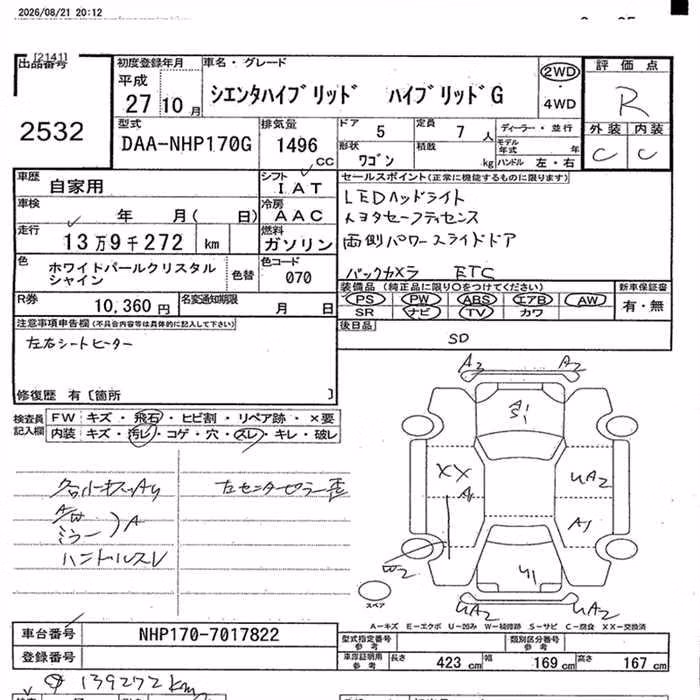 2026/08/21 20:12
[2141]
出品番号
2532
初度登録年月
平成
27 10月
車名・グレード
シエンタハイブリッド ハイブリッドG
2WD
・
4WD
評価点
R
外装 内装
C C
型式
DAA-NHP170G
排気量
1496 cc
ドア
5
定員
7 人
形状
ワゴン
積載
kg
ディーラー・並行
モデル年式 年
ハンドル 左・右
車歴
自家用
シフト
IAT
車検
年 月( 日)
冷房
AAC
走行
13万9千272 km
燃料
ガソリン
色
ホワイトパールクリスタル
シャイン
色替
色コード
070
R券
10,360円
名変通知期限
月 日
セールスポイント(正常に機能するものに限ります)
LEDヘッドライト
トヨタセーフティセンス
両側パワースライドドア
バックカメラ ETC
装備品(純正品に限り○をつけてください)
新車保証書
PS PW ABS エアB AW
SR ナビ TV カワ
有・無
後日品
SD
注意事項申告欄(不具合内容等は具体的に記入して下さい)
左右シートヒーター
修復歴 有〔箇所 〕
検査員
記入欄
FW キズ・飛石・ヒビ割・リペア跡・×要
内装 キズ・汚レ・コゲ・穴・スレ・キレ・破レ
左センターピラー歪
A/W
ミラー )A
ハンドルスレ
A2 A2
A
S1
XX
A
UA2
A1
W2
U1
UA2 UA2
スペア
A-キズ E-エクボ U-凹み W-補修跡 S-サビ C-腐食 XX-交換済
車台番号
NHP170-7017822
登録番号
型式指定番号
参考
類別区分番号
参考
車庫証明用
参考
長さ 423 cm 幅 169 cm 高さ 167 cm
139272km